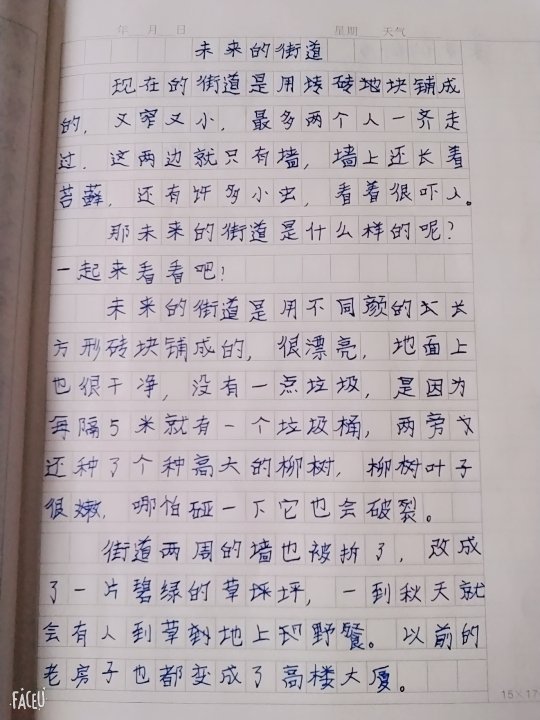 年 月 日 星期 天气
未来的街道
现在的街道是用砖砖地块铺成
的，又窄又小，最多两个人一齐走
过，这两边就只有墙，墙上还长着
苔藓，还有许多小虫，看着很吓人。
那未来的街道是什么样的呢？
一起来看看吧！
未来的街道是用不同颜的长
方形砖块铺成的，很漂亮，地面上
也很干净，没有一点垃圾，是因为
每隔5米就有一个垃圾桶，两旁
还种了个种高大的柳树，柳树叶子
很嫩，哪怕碰一下它也会破裂。
街道两周的墙也被拆了，改成
了一片碧绿的草坪坪，一到秋天就
会有人到草地上野餐。以前的
老房子也都变成了高楼大厦。
15×17
FACEU